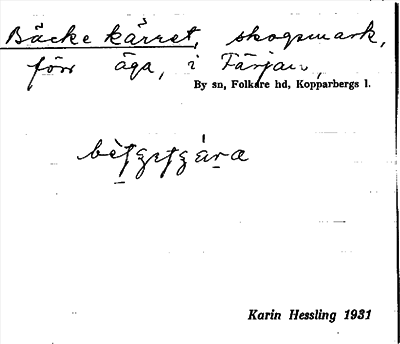 Bäcke kärret, skogsmark,
förr äga, i Färjan,
By sn, Folkare hd, Kopparbergs l.
Karin Hessling 1931